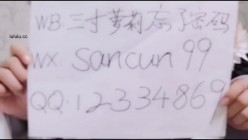 lululu.cc
WB:三寸萝莉忘了密码
WX:sancun99
QQ:12334869